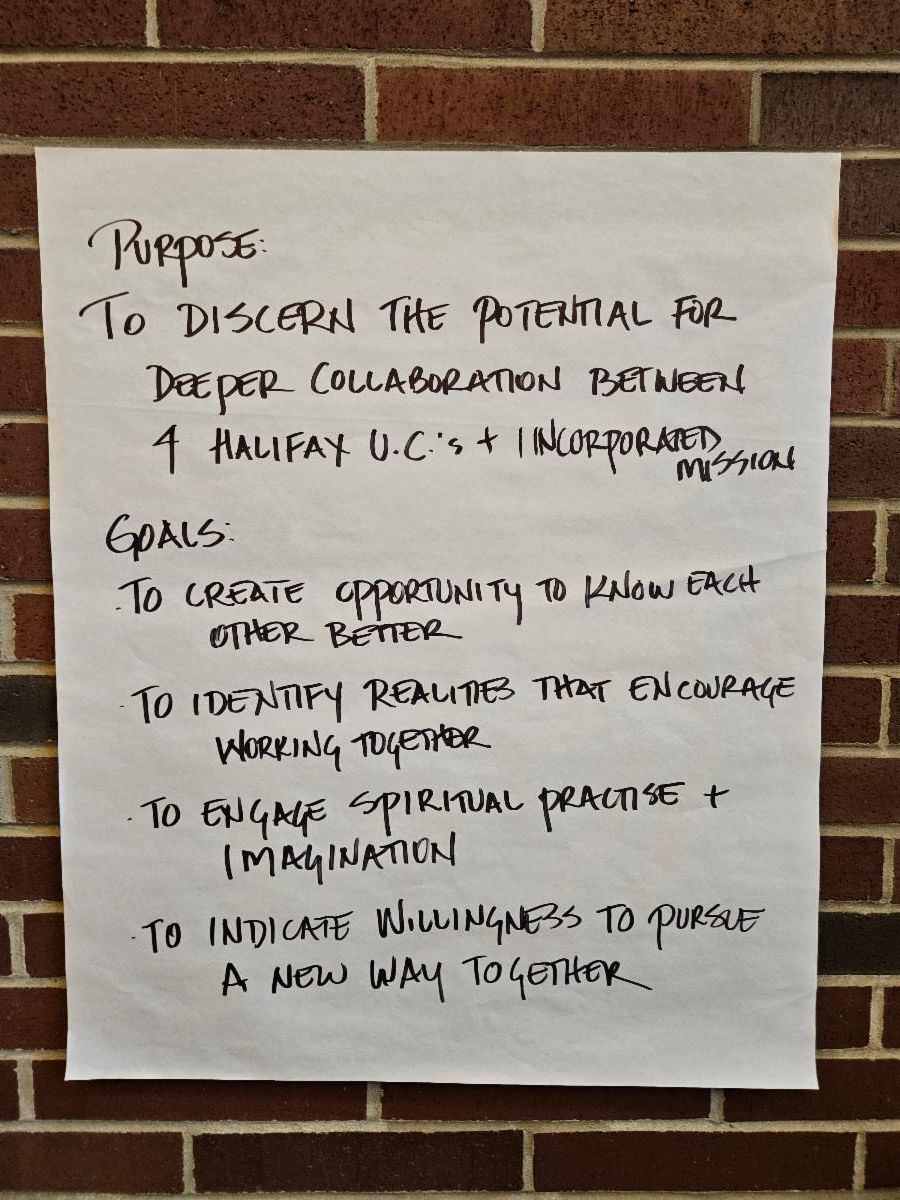 PURPOSE:
TO DISCERN THE POTENTIAL FOR
DEEPER COLLABORATION BETWEEN
4 HALIFAX U.C.'s + 1 INCORPORATED
MISSION
GOALS:
· TO CREATE OPPORTUNITY TO KNOW EACH
OTHER BETTER
· TO IDENTIFY REALITIES THAT ENCOURAGE
WORKING TOGETHER
· TO ENGAGE SPIRITUAL PRACTISE +
IMAGINATION
· TO INDICATE WILLINGNESS TO PURSUE
A NEW WAY TOGETHER